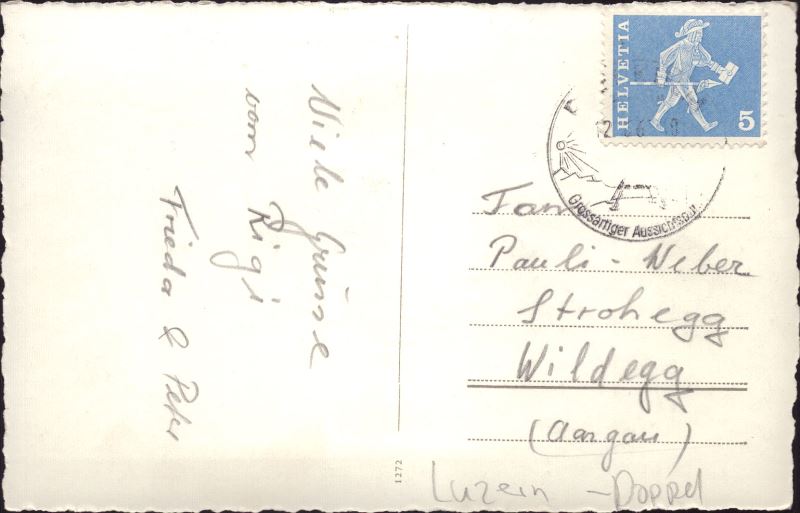 Viele Grüsse
vom Rigi
Frieda & Peter
HELVETIA
5
Grossartiger Aussichtspunkt
Fam
Pauli-Weber
Strohegg
Wildegg
(Aargau)
1272
Luzern - Doppel